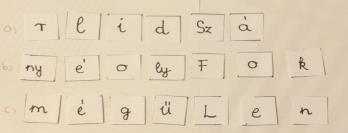 a) T l i d Sz á
b) ny é o ly F o k
c) m é g ü L e n